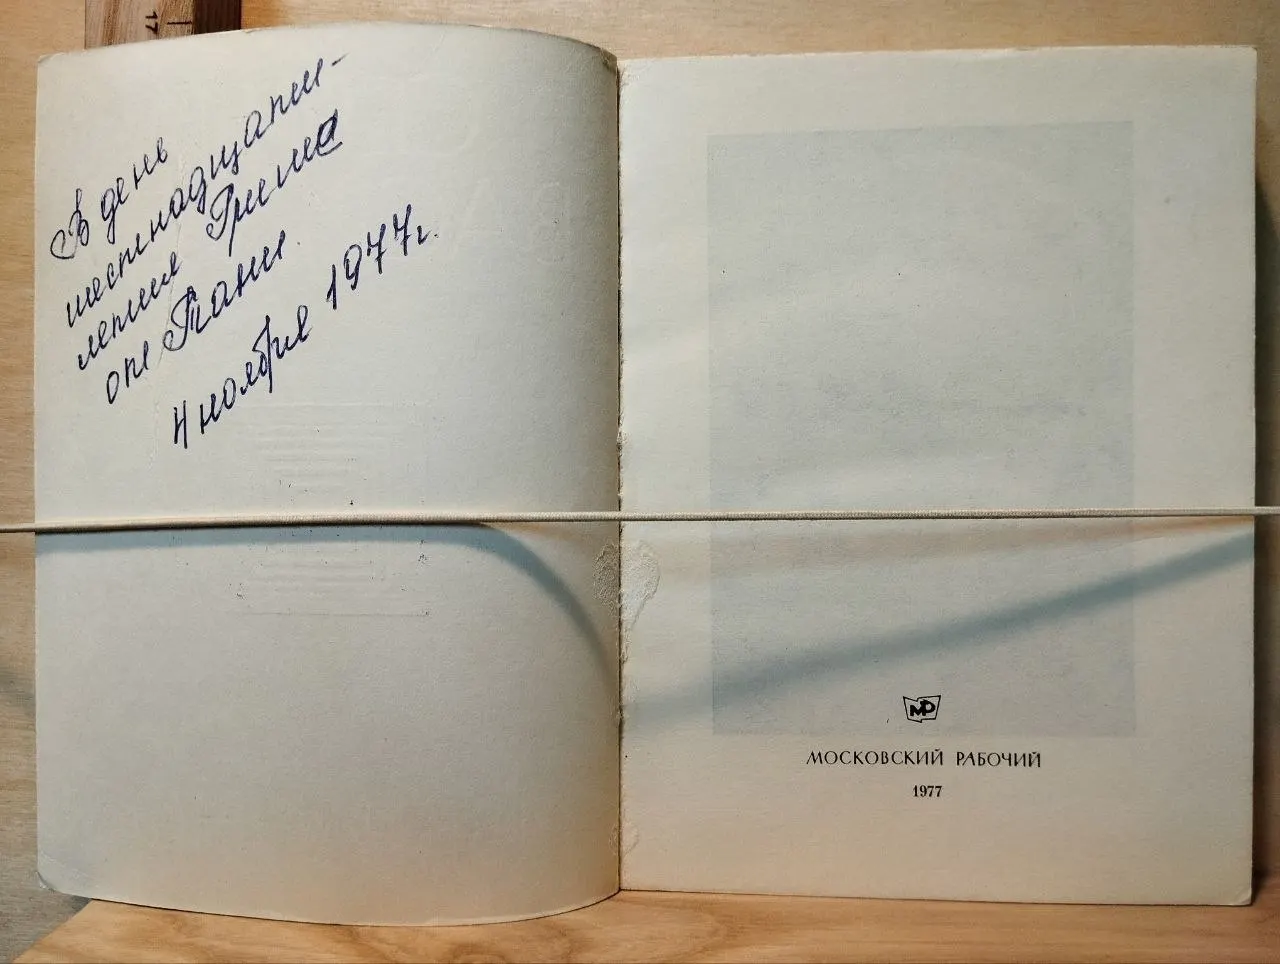 В день
шестнадцати-
летия Гриша
от Тани.
4 ноября 1977г.
МР
МОСКОВСКИЙ РАБОЧИЙ
1977
17